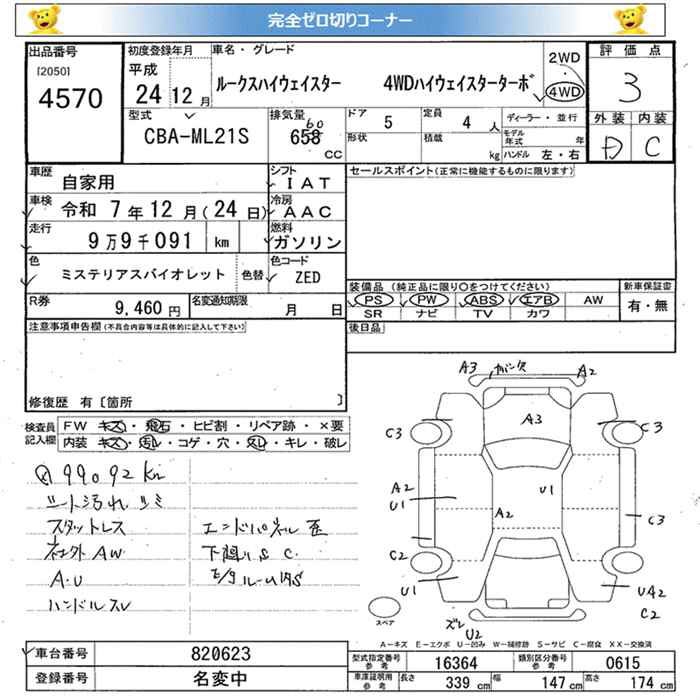 完全ゼロ切りコーナー
出品番号
[2050]
4570
初度登録年月
平成
24年12月
車名・グレード
ルークスハイウェイスター 4WDハイウェイスターターボ
2WD
・
4WD
評価点
3
外装 内装
D C
型式
CBA-ML21S
排気量
60
658
CC
ドア 5
定員 4 人
形状
積載
kg
ディーラー・並行
モデル年式 年
ハンドル 左・右
車歴
自家用
シフト
IAT
車検
令和 7年12月(24日)
冷房
AAC
走行
9万9千091 km
燃料
ガソリン
色
ミステリアスバイオレット
色替
色コード
ZED
R券
9,460 円
名変通知期限
月 日
セールスポイント(正常に機能するものに限ります)
装備品 (純正品に限り○をつけてください)
PS PW ABS エアB AW
SR ナビ TV カワ
新車保証書
有・無
後日品
注意事項申告欄(不具合内容等は具体的に記入して下さい)
修復歴 有〔箇所 〕
検査員記入欄
FW キズ・飛石・ヒビ割・リペア跡・×要
内装 キズ・汚レ・コゲ・穴・スレ・キレ・破レ
99092km
シート汚れ シミ
スタットレス
社外AW
A・U
ハンドルスレ
エンドパネル歪
下廻りS C
E/gルーム内S
A3
ガリ欠
A2
A3
C3
C3
A2
U1
U1
A2
C3
C2
U1
U42
C2
ズレ
U2
スペア
A-キズ E-エクボ U-凹み W-補修跡 S-サビ C-腐食 XX-交換済
車台番号
820623
登録番号
名変中
型式指定番号
参考
16364
類別区分番号
参考
0615
車庫証明用
参考
長さ 339 cm
幅 147 cm
高さ 174 cm